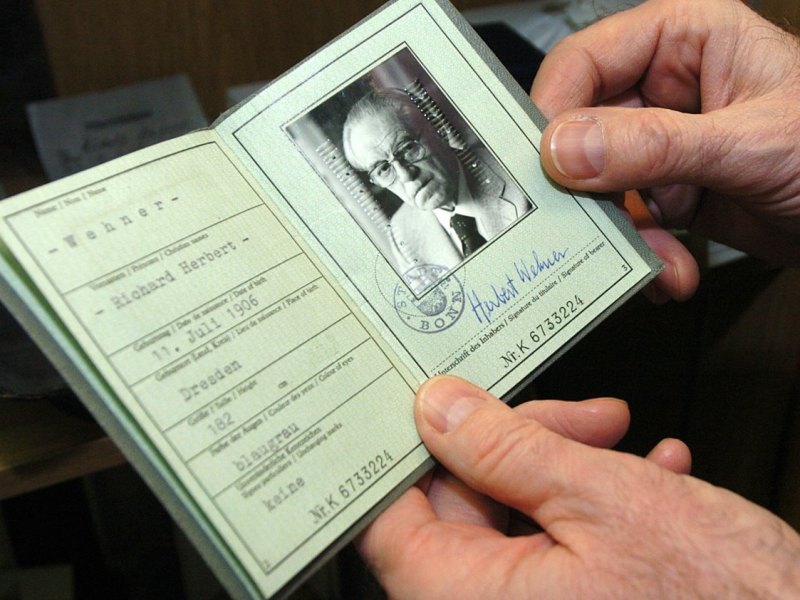 Name / Nom / Name
- Wehner -
Vornamen / Prénoms / Christian names
- Richard Herbert -
Geburtstag / Date de naissance / Date of birth
11. Juli 1906
Geburtsort (Land, Kreis) / Lieu de naissance / Place of birth
Dresden
Größe / Taille / Height cm
182
Farbe der Augen / Couleur des yeux / Colour of eyes
blaugrau
Unveränderliche Kennzeichen
Signes particuliers / Distinguishing marks
keine
Nr. K 6733224
2
STADT
BONN
Herbert Wehner
Unterschrift des Inhabers / Signature du titulaire / Signature of bearer
Nr. K 6733224
3